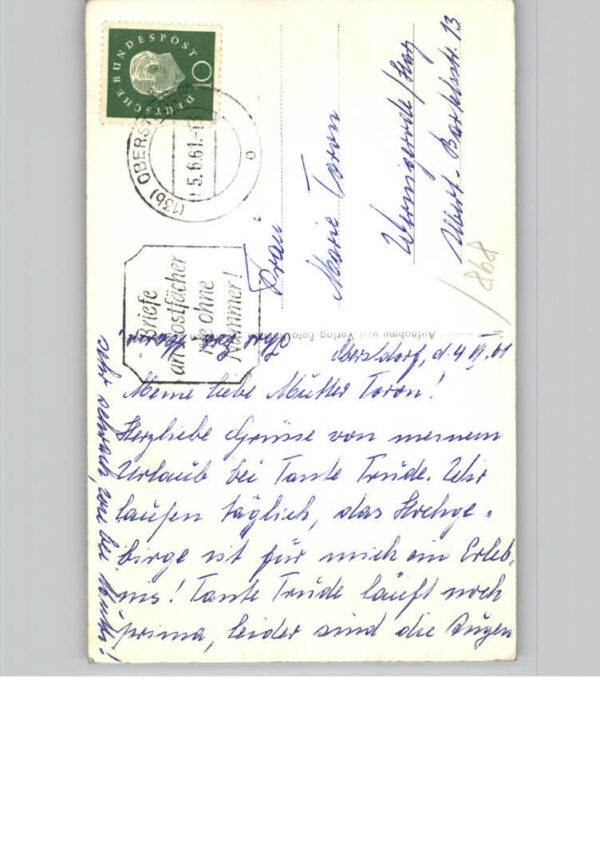 DEUTSCHE BUNDESPOST
10
(13b) OBERST
5.6.61.-
Briefe
an Postfächer
nie ohne
Nummer!
Frau
Marie Toron
Wernigerode/Harz
Albert-Bartelsstr. 13
868
Aufnahme und Verlag Foto
Oberstdorf, d. 4.VI.61
Meine liebe Mutter Toron!
Herzliebe Grüsse von meinem
Urlaub bei Tante Trude. Wir
laufen täglich, das Hochge-
birge ist für mich ein Erleb-
nis! Tante Trude läuft noch
prima, leider sind die Augen
sehr schwach, wie bei Mutti!